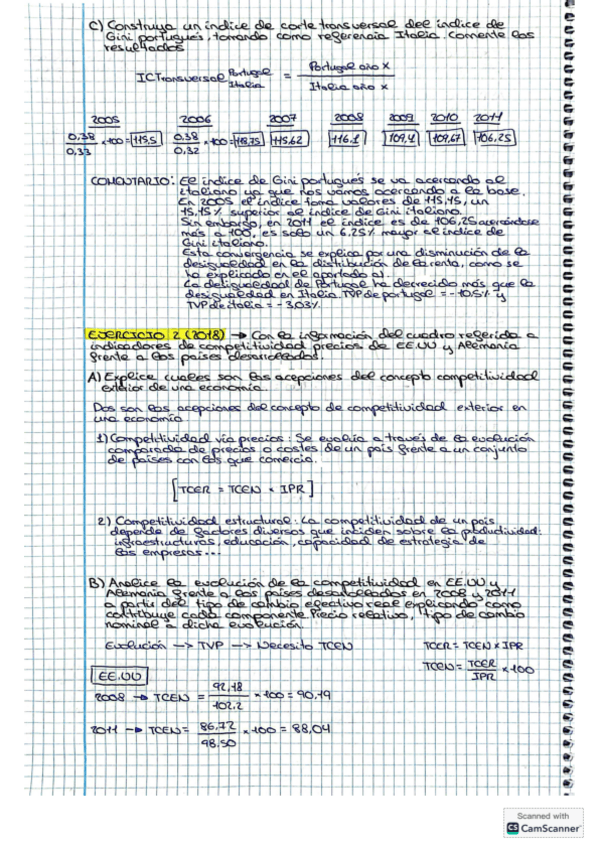 C) Construya un índice de corte transversal del índice de
Gini portugués, tomando como referencia Italia. Comente los
resultados
ICTransversal Portugal Italia = Portugal año x / Italia año x
2005 2006 2007 2008 2009 2010 2011
0,38/0,33 x100 = 115,5 0,38/0,32 x100 = 118,75 115,62 116,1 109,4 109,67 106,25
COMENTARIO: El índice de Gini portugués se va acercando al
italiano ya que nos vamos acercando a la base.
En 2005 el índice toma valores de 115,15, un
15,15% superior al índice de Gini italiano.
Sin embargo, en 2011 el índice es de 106,25 acercándose
más a 100, es solo un 6,25% mayor al índice de
Gini italiano.
Esta convergencia se explica por una disminución de la
desigualdad en la distribución de la renta, como se
ha explicado en el apartado a).
La desigualdad de Portugal ha decrecido más que la
desigualdad en Italia. TVP de portugal = -10,5% y
TVP de italia = -3,03%.
EJERCICIO 2 (2018) → Con la información del cuadro referida a
indicadores de competitividad precios de EE.UU y Alemania
frente a los países desarrollados.
A) Explique cuales son las acepciones del concepto competitividad
exterior de una economía.
Dos son las acepciones del concepto de competitividad exterior en
una economía
1) Competitividad vía precios: Se evalúa a través de la evolución
comparada de precios o costes de un país frente a un conjunto
de países con los que comercio.
[TCER = TCEN x IPR]
2) Competitividad estructural: La competitividad de un país
depende de factores diversos que inciden sobre la productividad:
infraestructuras, educación, capacidad de estrategia de
las empresas...
B) Analice la evolución de la competitividad en EE.UU y
Alemania frente a los países desarrollados en 2008 y 2011
a partir del tipo de cambio efectivo real explicando como
contribuye cada componente precio relativo, tipo de cambio
nominal a dicha evolución.
Evolución → TVP → Necesito TCEN TCER = TCEN x IPR
TCEN = TCER / IPR x 100
EE.UU
2008 → TCEN = 92,18 / 102.2 x 100 = 90,19
2011 → TCEN = 86,72 / 98.50 x 100 = 88,04
Scanned with
CS CamScanner